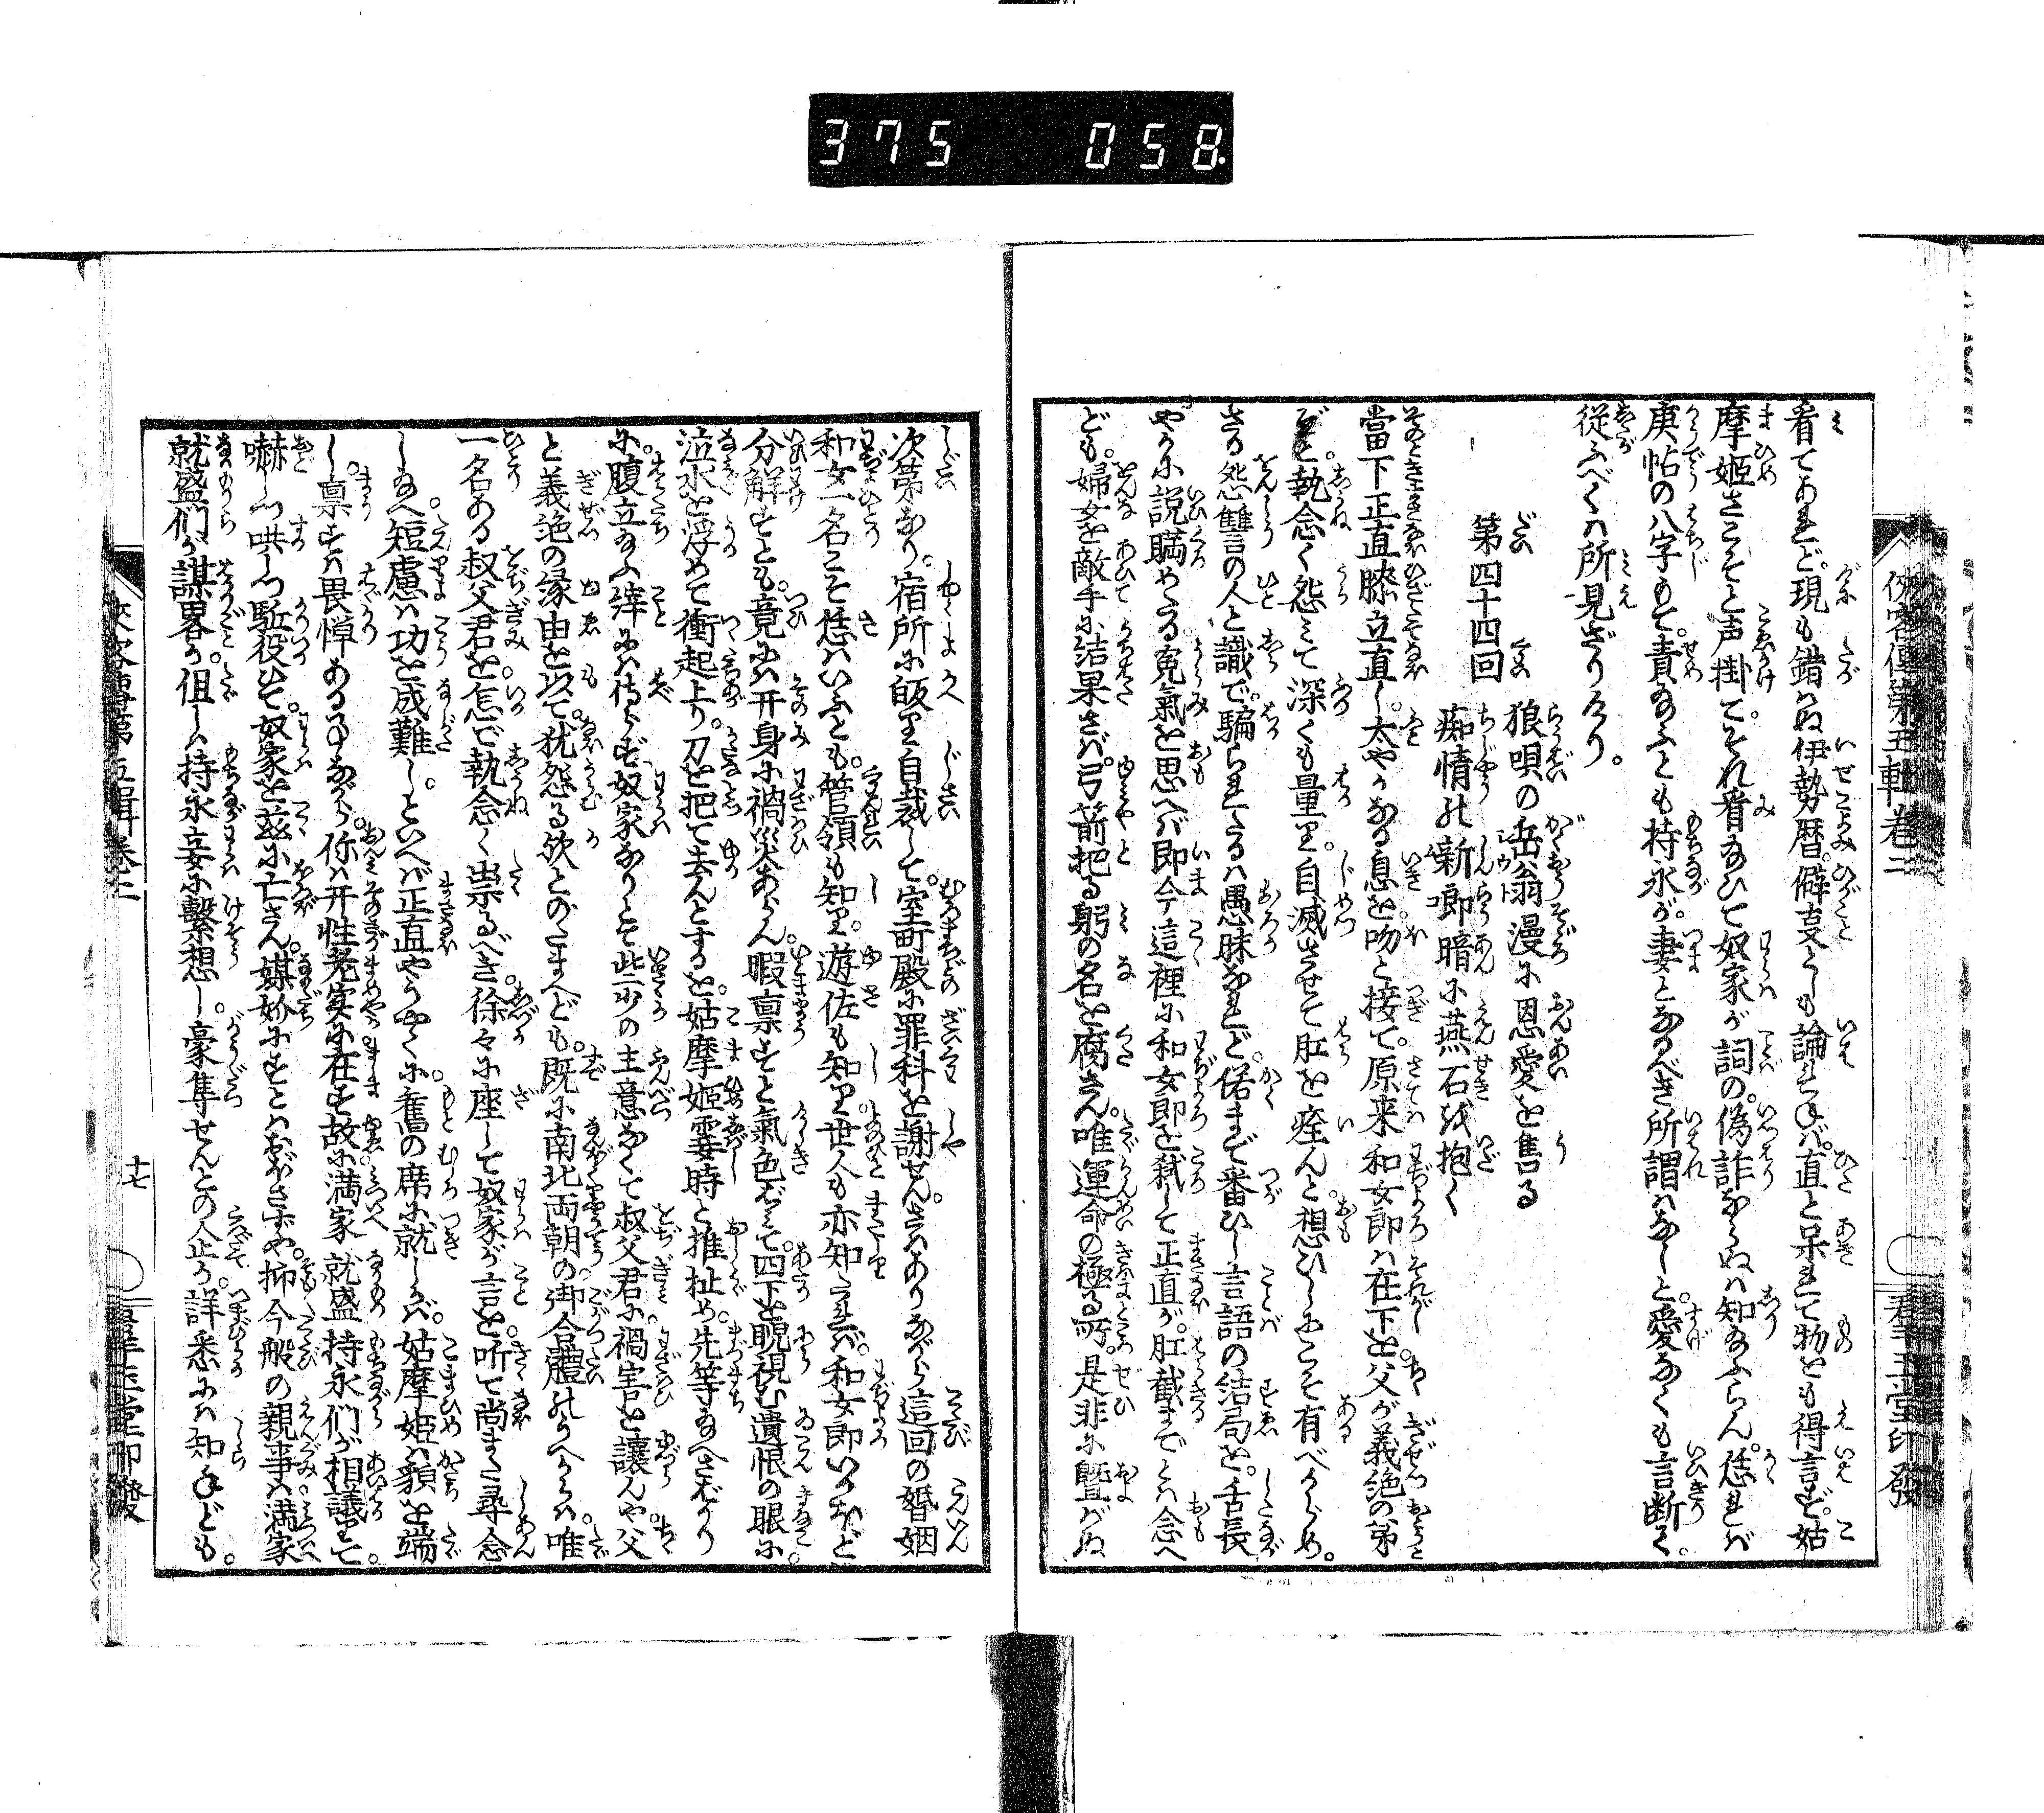 375 058.
俠客傳第五輯卷二
看てあれど。現も錯はぬ伊勢暦。僻言としも論はねば。直と呆れて物をも得言ず。姑
摩姫さこそと声掛て。それ看給ひて奴家が詞の。偽詐ならぬは知給ふらん。恁れば
庚帖の八字もて。責給ふとも持永が。妻となるべき所謂はなしと。愛なくも言断く。
従ふべくは所見ざりけり。
第四十四回
狼唄の岳翁漫に恩愛を售る
痴情の新郎暗に燕石を抱く
當下正直膝立直し。太やかなる息を吻と接て。原来和女郎は在下を。父が義絶の弟
ぞと。執念く怨みて深くも量り。自滅させて肚を痊んと。想ひしにこそ有べからめ。
さる怨讐の人と識で。騙られたるは愚昧なれど。偌まで番ひし言語の結局を。舌長
やかに説瞞めたる。寃氣を思へば即今這裡に和女郎を弑して正直が。肚截までとは念へ
ども。婦女を敵手に結果さば。弓箭把る躬の名を腐さん。唯運命の極る所。是非に曁ばぬ
次第なり。宿所に皈り自裁して。室町殿に罪科を謝せん。さはありながら這回の婚姻
和女一名こそ恁はいふとも。管領も知り。遊佐も知り世人も亦知たれば。和女郎いかほど
分解すとも。竟には开身に禍災あらん。暇禀すと氣色ばみて。四下を睨視む遺恨の眼に
泣水を浮めて衝起上り。刀を把て去んとするを。姑摩姫霎時と推扯め。先等給へさばかり
に。腹立給ふ縡には侍らず。奴家なりとて些少の主意なくて叔父君に。禍害を讓んや。父
と義絶の縁由を以て。犹怨る欤とのたまへども。既に南北両朝の。御合體のうへからは。唯
一名ある叔父君を。怎で執念く祟るべき。徐々に座して奴家が言を。听て尚また尋念
し給へ。短慮は功を成難し。といへば正直やうやくに。舊の席に就しかば。姑摩姫は貌を端
し。禀すは畏憚あることながら。你は开性老実に在す故に。満家就盛持永們が相議して。
嚇しつ哄しつ駈役ひて。奴家を茲に亡さん。媒妁にすとはおぼさずや。抑今般の親事は。満家
就盛們が謀畧か。但しは持永妾に繋想し。豪隼せんとの人止か。詳悉には知らねども。
十七